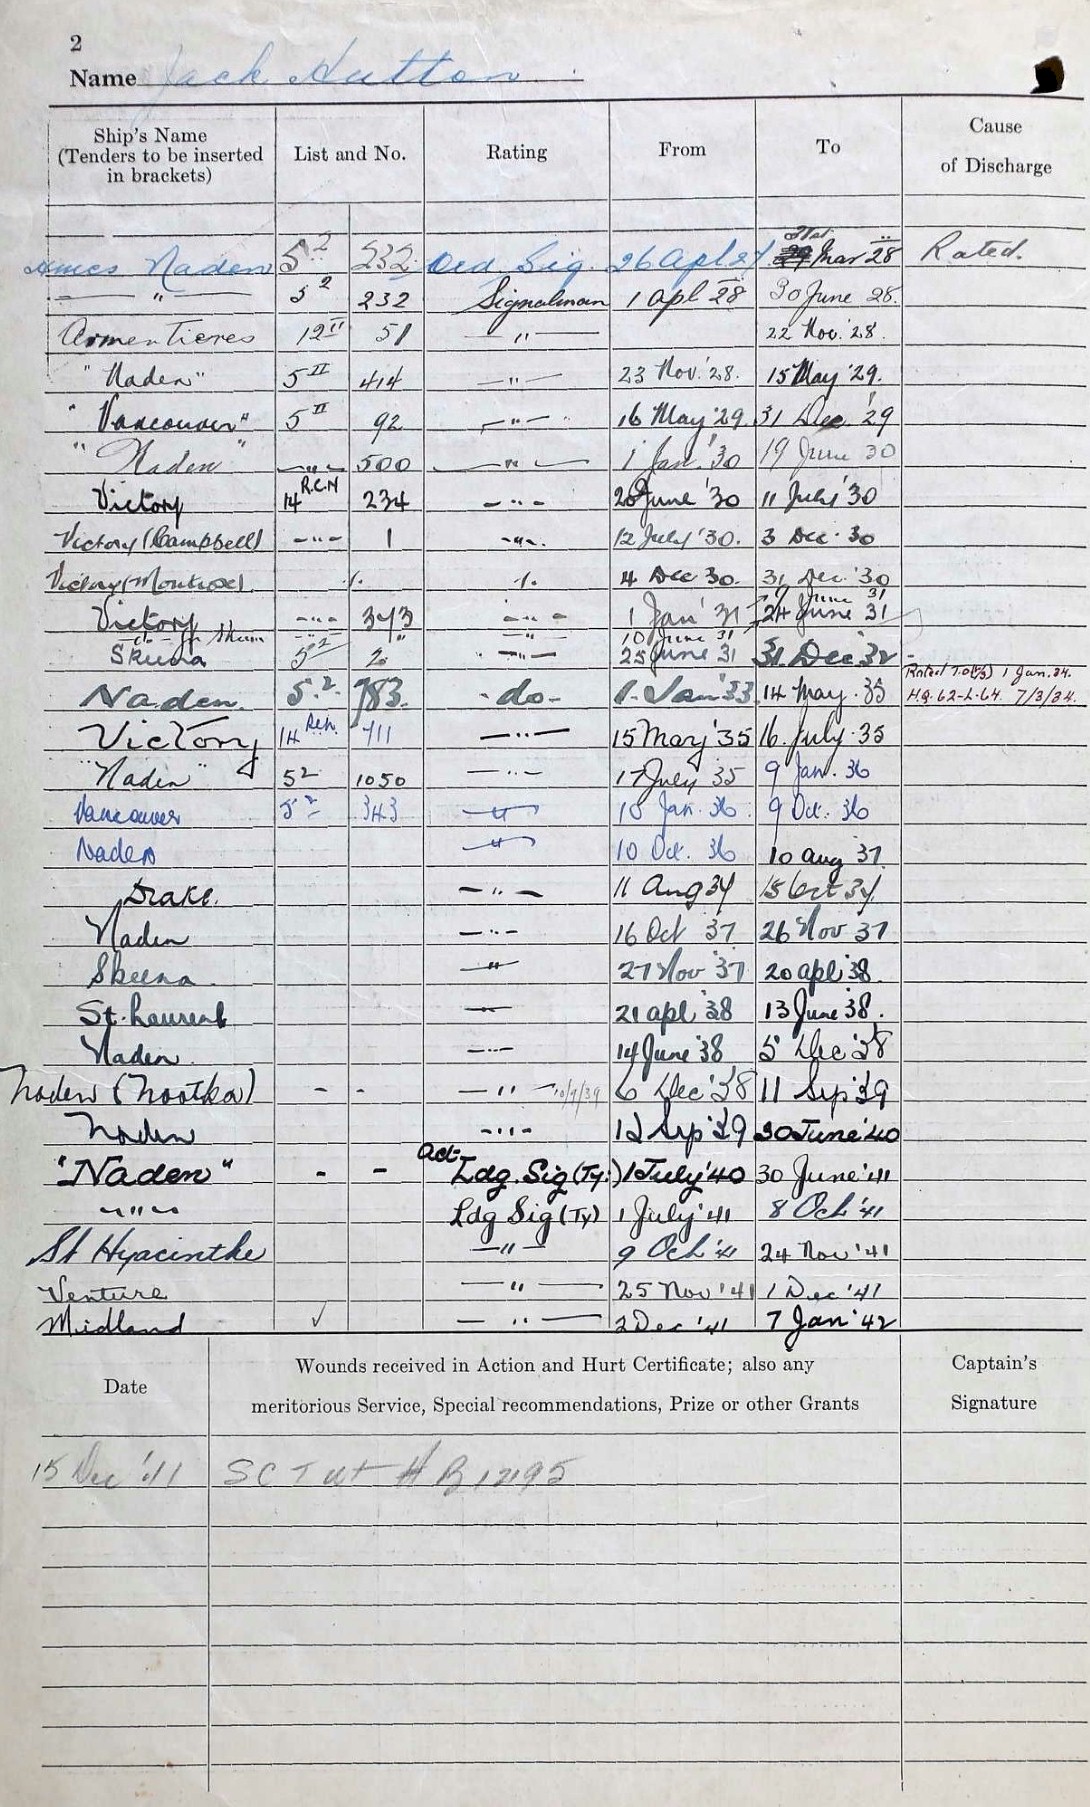 2
Name Jack Hutton
Ship's Name (Tenders to be inserted in brackets) List and No. Rating From To Cause of Discharge
Naden 5² 232 Ord Sig. 26 Apl 27 31st Mar 28 Rated.
— " — 5² 232 Signalman 1 Apl 28 30 June 28.
Armentieres 12 II 51 — " — 22 Nov. '28.
"Naden" 5 II 414 — " — 23 Nov. '28. 15 May '29.
"Vancouver" 5 II 92 — " — 16 May '29. 31 Dec. '29
"Naden" — " — 500 — " — 1 Jan. '30 19 June 30
Victory 14 R.C.N 234 — " — 20 June '30 11 July '30
Victory (Campbell) — " — 1 — " — 12 July '30. 3 Dec. 30
Victory (Montrose) ·/· ·/· 4 Dec 30. 31 Dec '30
Victory — " — 343 — " — 1 Jan' 31 9 June 31
— do — for Skeena — " — " — " — 10 June 31 24 June 31
Skeena 5² 2 — " — 25 June 31 31 Dec '32
Naden. 5.² 783. - do - 1. Jan '33 14 May. 35 Rated T.O. 1 Jan. 34. H.Q. 62-L-64. 7/3/34.
Victory 14 RCN. 711 — " — 15 May '35 16. July. 35
"Naden" 5² 1050 — " — 17 July '35 9 Jan. 36
Vancouver 5² 343 — " — 10 Jan. 36 9 Oct. 36
Naden — " — 10 Oct. 36 10 Aug 37.
Drake. — " — 11 Aug 37 15 Oct 37.
Naden — " — 16 Oct 37 26 Nov 37
Skeena — " — 27 Nov '37 20 Apl '38
St. Laurent — " — 21 Apl '38 13 June '38.
Naden — " — 14 June '38 5 Dec '38
Naden (Nootka) - - — " — 10/9/39 6 Dec '38 11 Sep '39
Naden — " — 12 Sep '39 30 June '40
"Naden" - - Act- Ldg. Sig (Ty.) 1 July '40 30 June '41
" " " Ldg Sig (Ty) 1 July '41 8 Oct '41
St Hyacinthe — " — 9 Oct '41 24 Nov '41
Venture — " — 25 Nov '41 1 Dec '41
Midland ✓ — " — 2 Dec '41 7 Jan '42
Date Wounds received in Action and Hurt Certificate; also any meritorious Service, Special recommendations, Prize or other Grants Captain's Signature
15 Dec '41 S C T H B 12195